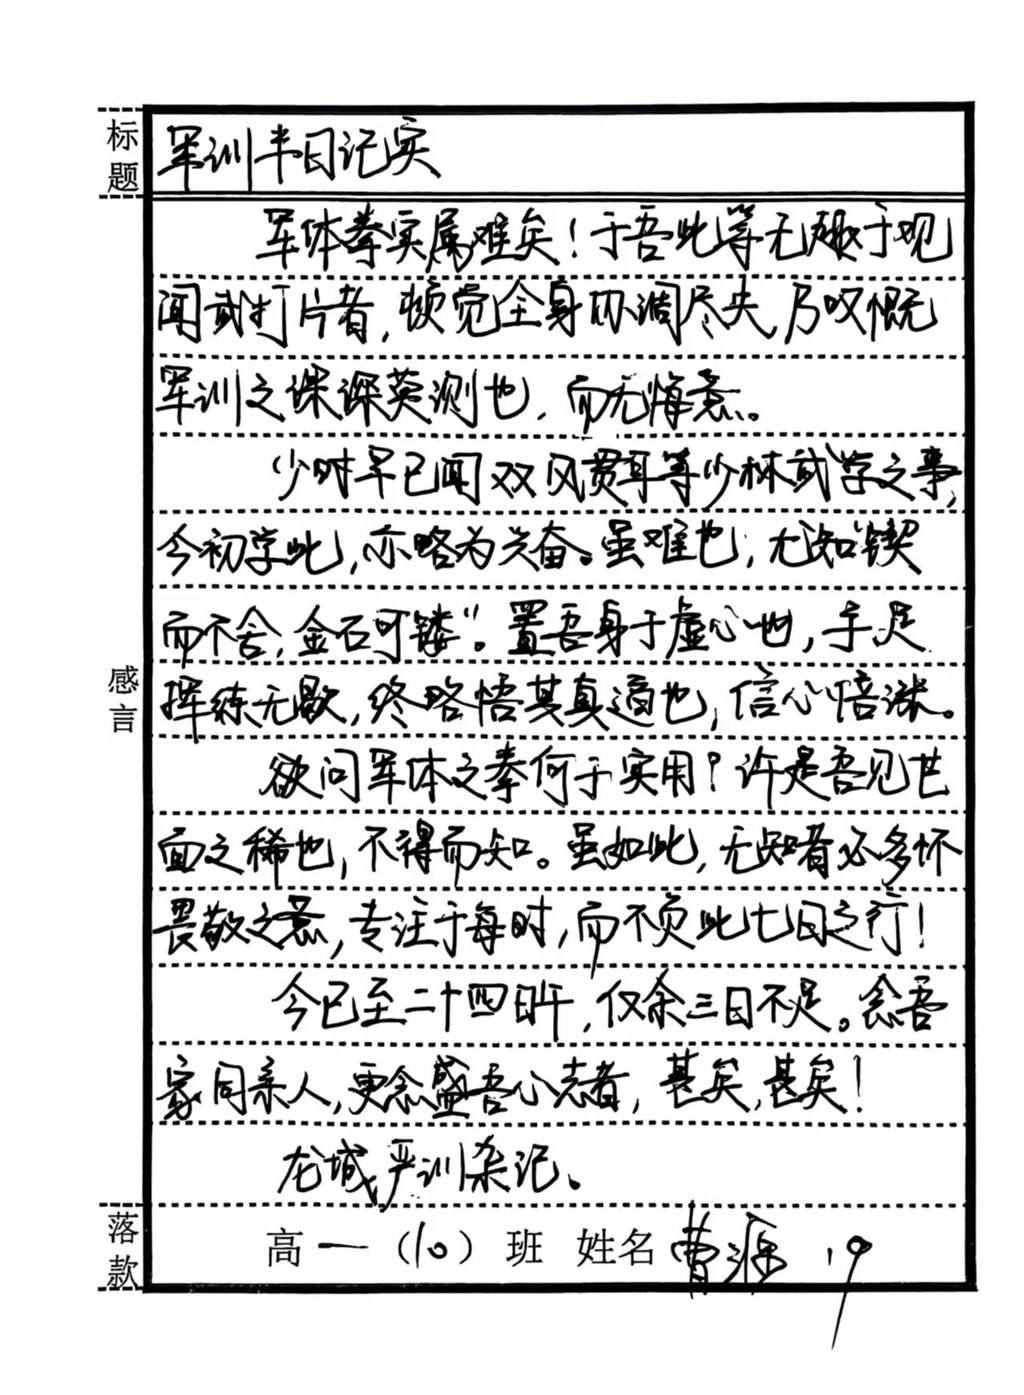 标题
军训半日记实
军体拳实属难矣！于吾此等无趣于观
闻武打片者，顿觉全身协调尽失，乃叹慨
军训之课深莫测也，而无悔意。
少时早已闻双风贯耳等少林武学之事，
今初学此，亦略为兴奋。虽难也，尤知“锲
而不舍，金石可镂”。置吾身于虚心地，手足
挥练无歇，终略悟其真通也，信心倍涨。
感言
欲问军体之拳何于实用？许是吾见世
面之稀也，不得而知。虽如此，无知者必多怀
畏敬之意，专注于每时，而不负此七日之行！
今已至二十四日午，仅余三日不足。念吾
家同亲人，更念盛吾心志者，甚矣，甚矣！
龙城严训杂记。
落款
高一（10）班 姓名曹源